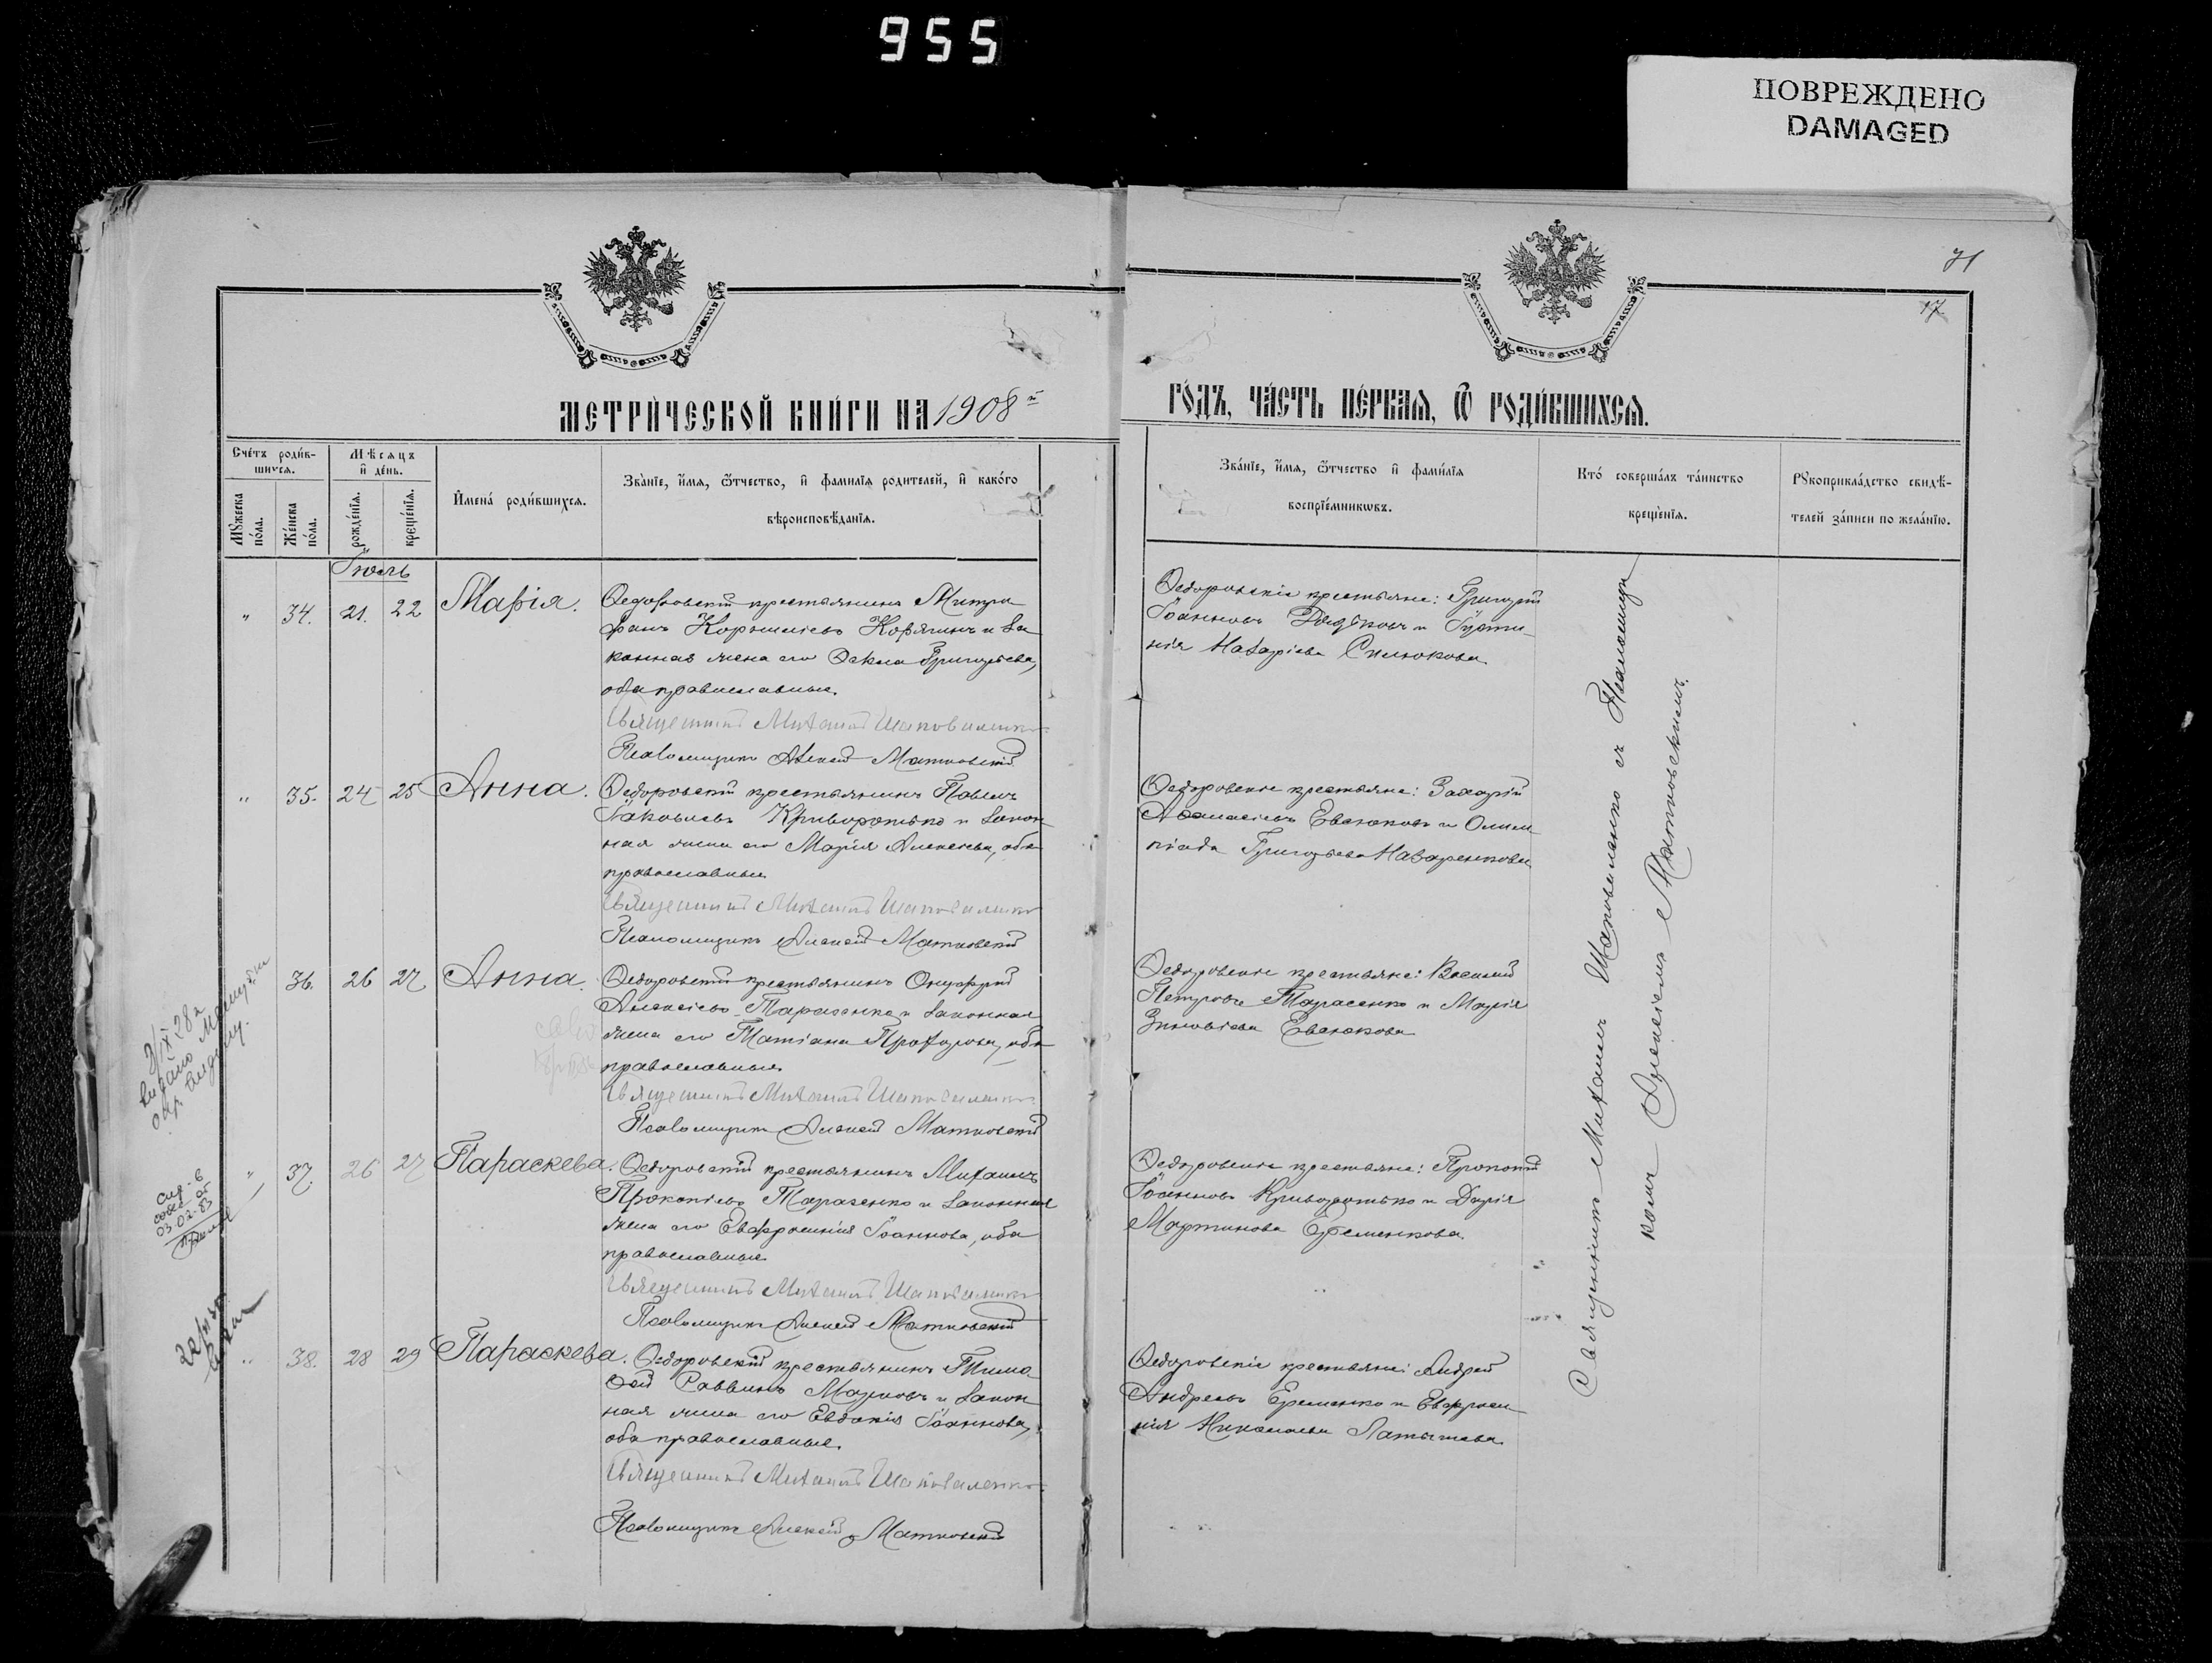 955
ПОВРЕЖДЕНО
DAMAGED
71
17
МЕТРИ́ЧЕСКОЙ КНИ́ГИ НА 1908й
ГО́ДЪ, ЧА́СТЬ ПЕ́РВАѦ, Ѿ РОДИ́ВШИХСѦ.
Сче́тъ роди́в-
шихся.
Мѣсяцъ
и҆ де́нь.
Мꙋжеска по́ла.
Же́нска по́ла.
рожде́нїѧ.
креще́нїѧ.
И҆мена́ роди́вшихсѧ.
Зва́нїе, и҆́мѧ, ѻ҆́тчество, и҆ фами́лїѧ родителей, и҆ како́го
вѣроисповѣ́данїѧ.
Зва́нїе, и҆́мѧ, ѻ҆́тчество и҆ фами́лїѧ
воспрїе́мникѡвъ.
Кто́ соверша́лъ та́инство
креще́нїѧ.
Рꙋкоприкла́дство свидѣ́-
телей за́писи по жела́нїю.
Іюль
" 34. 21. 22 Марія. Ѳедоровскій крестьянинъ Митро
фанъ Корнилiевъ Корягинъ и за
конная жена его Ѳекла Григорьева,
оба православные.
Священникъ Михаилъ Шаповаленко
Псаломщикъ Алексѣй Матковскій
Ѳедоровскіе крестьяне: Григорій
Іоанновъ Дядьковъ и Іусти-
нія Назаріева Силюкова
" 35. 24 25 Анна. Ѳедоровскій крестьянинъ Павелъ
Іаковлевъ Криворотько и закон
ная жена его Марія Алексѣева, оба
православные
Священникъ Михаилъ Шаповаленко
Псаломщикъ Алексѣй Матковскій
Ѳедоровскіе крестьяне: Захарій
Аѳанасіевъ Евсюковъ и Олим
піада Григорьева Назаренкова
36. 26 27 Анна. Ѳедоровскій крестьянинъ Онуфрій
Алексѣевъ Тарасенко и законная
жена его Татіана Прохорова, оба
православные.
Священникъ Михаилъ Шаповаленко
Псаломщикъ Алексѣй Матковскій
Ѳедоровскіе крестьяне: Василій
Петровъ Тарасенко и Марія
Зиновіева Евсюкова
" 37. 26 27 Параскева. Ѳедоровскій крестьянинъ Михаилъ
Прокопіевъ Тарасенко и законная
жена его Евфросинія Іоаннова, оба
православные
Священникъ Михаилъ Шаповаленко
Псаломщикъ Алексѣй Матковскій
Ѳедоровскіе крестьяне: Прокопій
Іоанновъ Криворотько и Дарія
Мартинова Ефеменкова.
" 38. 28 29 Параскева. Ѳедоровскій крестьянинъ Тимо
ѳей Саввинъ Марковъ и закон
ная жена его Евдокія Іоаннова,
оба православные.
Священникъ Михаилъ Шаповаленко
Псаломщикъ Алексѣй Матковскій
Ѳедоровскіе крестьяне: Андрей
Андреевъ Еременко и Евфроси
нія Николаева Латышева
Священникъ Михаилъ Шаповаленко съ Псаломщи
комъ Алексіемъ Матковскимъ.
03-02-83